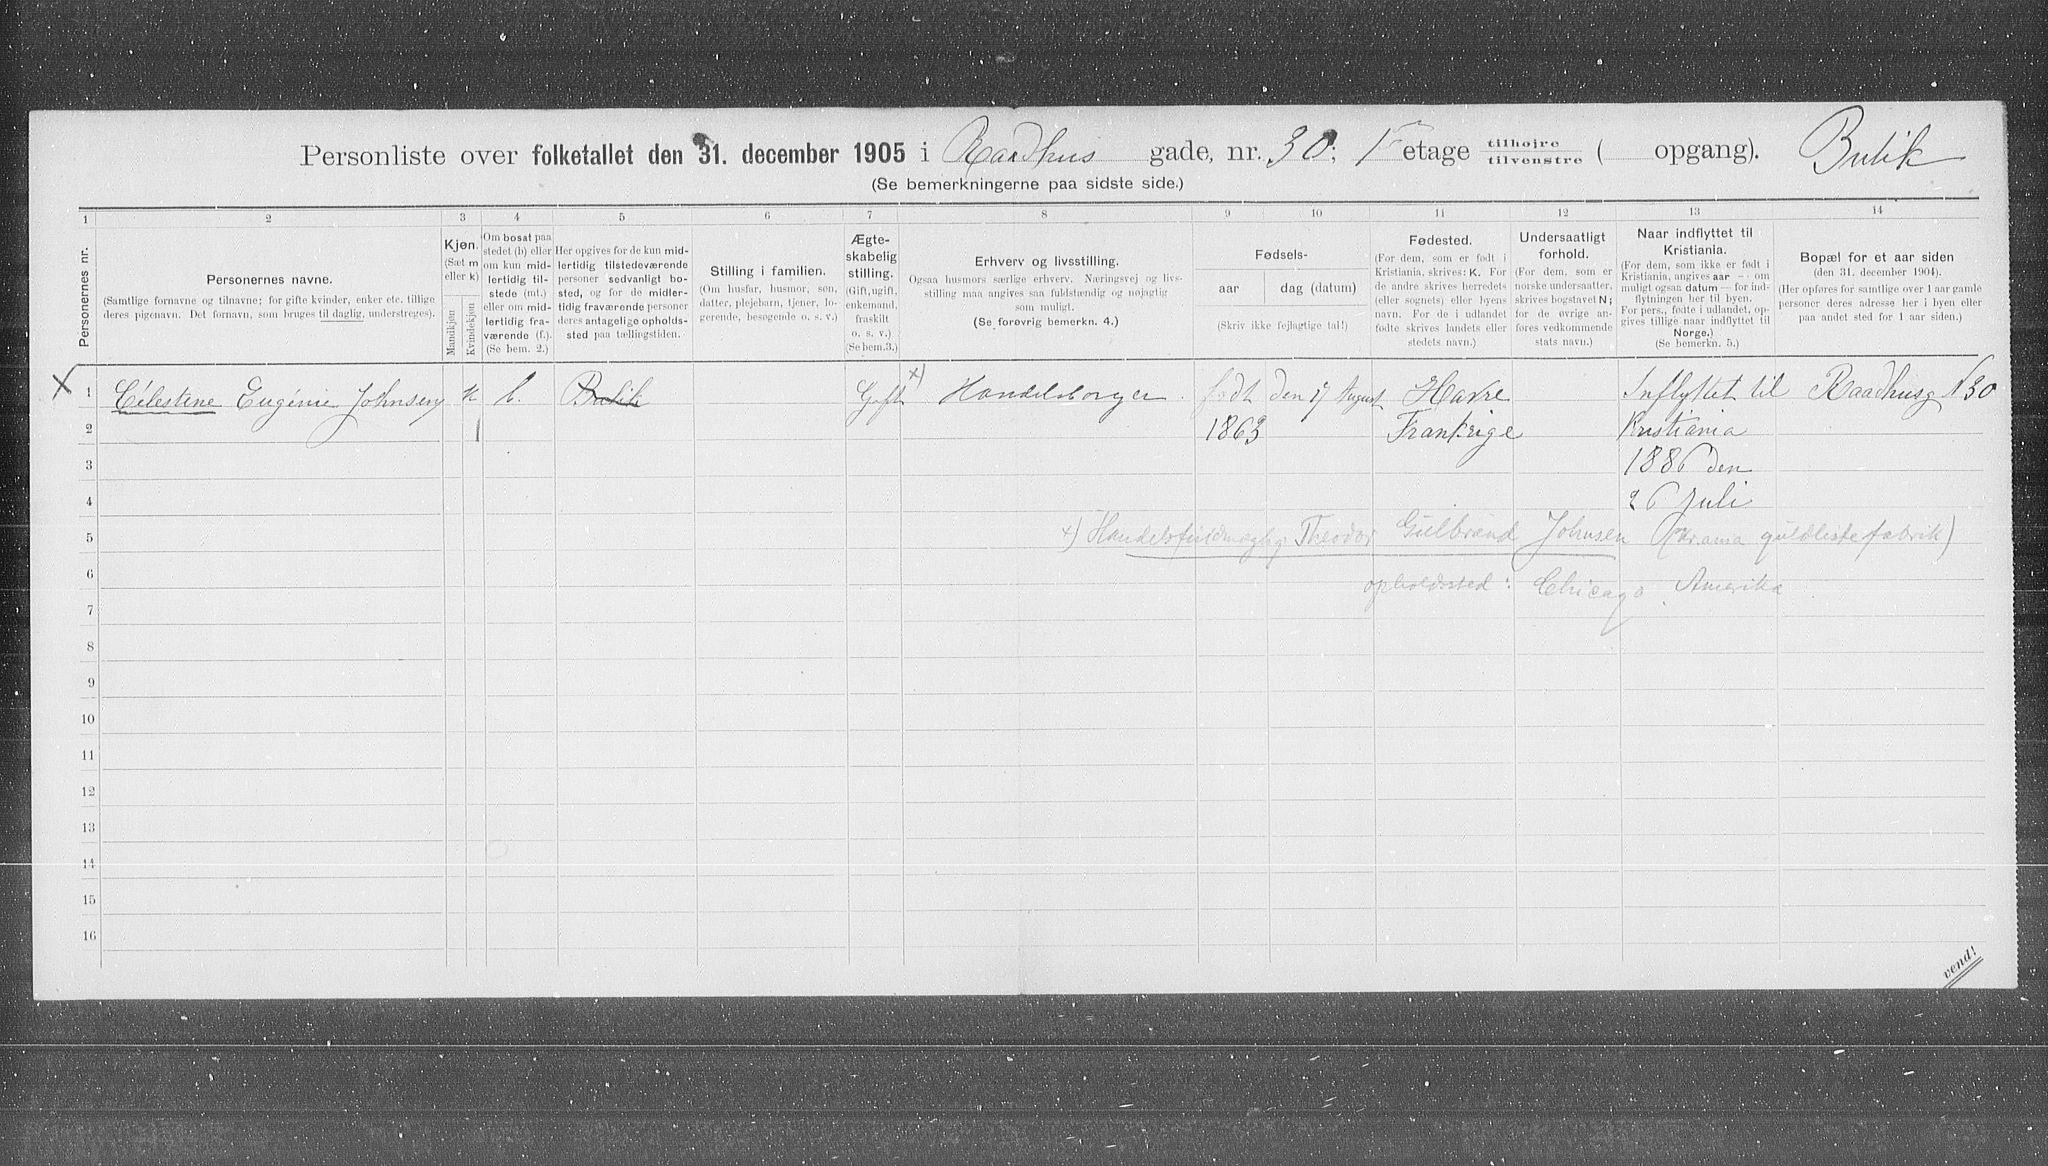 Personliste over folketallet den 31. december 1905 i Raadhus gade, nr. 30; 1ste etage tilhøjre tilvenstre ( opgang). Butik
(Se bemerkningerne paa sidste side.)
1 2 3 4 5 6 7 8 9 10 11 12 13 14
Personernes nr.
Personernes navne.
(Samtlige fornavne og tilnavne; for gifte kvinder, enker etc. tillige
deres pigenavn. Det fornavn, som bruges til daglig, understreges).
Kjøn.
(Sæt m
eller k)
Mandkjøn
Kvindekjøn
Om bosat paa
stedet (b) eller
om kun mid-
lertidig til-
stede (mt.)
eller om mid-
lertidig fra-
værende (f.).
(Se bem. 2.)
Her opgives for de kun mid-
lertidig tilstedeværende
personer sedvanligt bo-
sted, og for de midler-
tidig fraværende personer
deres antagelige opholds-
sted paa tællingstiden.
Stilling i familien.
(Om husfar, husmor, søn,
datter, plejebarn, tjener, lo-
gerende, besøgende o. s. v.)
Ægte-
skabelig
stilling.
(Gift, ugift,
enkemand,
fraskilt
o. s. v.)
(Se bem.3.)
Erhverv og livsstilling.
Ogsaa husmors særlige erhverv. Næringsvej og livs-
stilling maa angives saa fuldstændig og nøjagtig
som muligt.
(Se forøvrig bemerkn. 4.)
Fødsels-
aar
dag (datum)
(Skriv ikke fejlagtige tal!)
Fødested.
(For dem, som er født i
Kristiania, skrives: K. For
de andre skrives herredets
(eller sognets) eller byens
navn. For de i udlandet
fødte skrives landets eller
stedets navn.)
Undersaatligt
forhold.
(For dem, som er
norske undersaatter,
skrives bogstavet N;
for de øvrige an-
føres vedkommende
stats navn.)
Naar indflyttet til
Kristiania.
(For dem, som ikke er født i
Kristiania, angives aar — om
muligt ogsaa datum — for ind-
flytningen her til byen.
For pers., fødte i udlandet, op-
gives tillige naar indflyttet til
Norge.)
(Se bemerkn. 5.)
Bopæl for et aar siden
(den 31. december 1904).
(Her opføres for samtlige over 1 aar gamle
personer deres adresse her i byen eller
paa andet sted for 1 aar siden.)
X 1 Célestine Eugénie Johnsen k b. Butik Gift x) Handelsborger. født den 17 August Havre Inflyttet til Raadhusg N 30
2 1 1863 Frankrige Kristiania
3 1886 den
4 26 Juli
5 x) Handelsfuldmægtig Theodor Gulbrand Johnsen (Kr.ania guldlistefabrik)
6 opholdssted: Chicago, Amerika
7
8
9
10
11
12
13
14
15
16
vend!